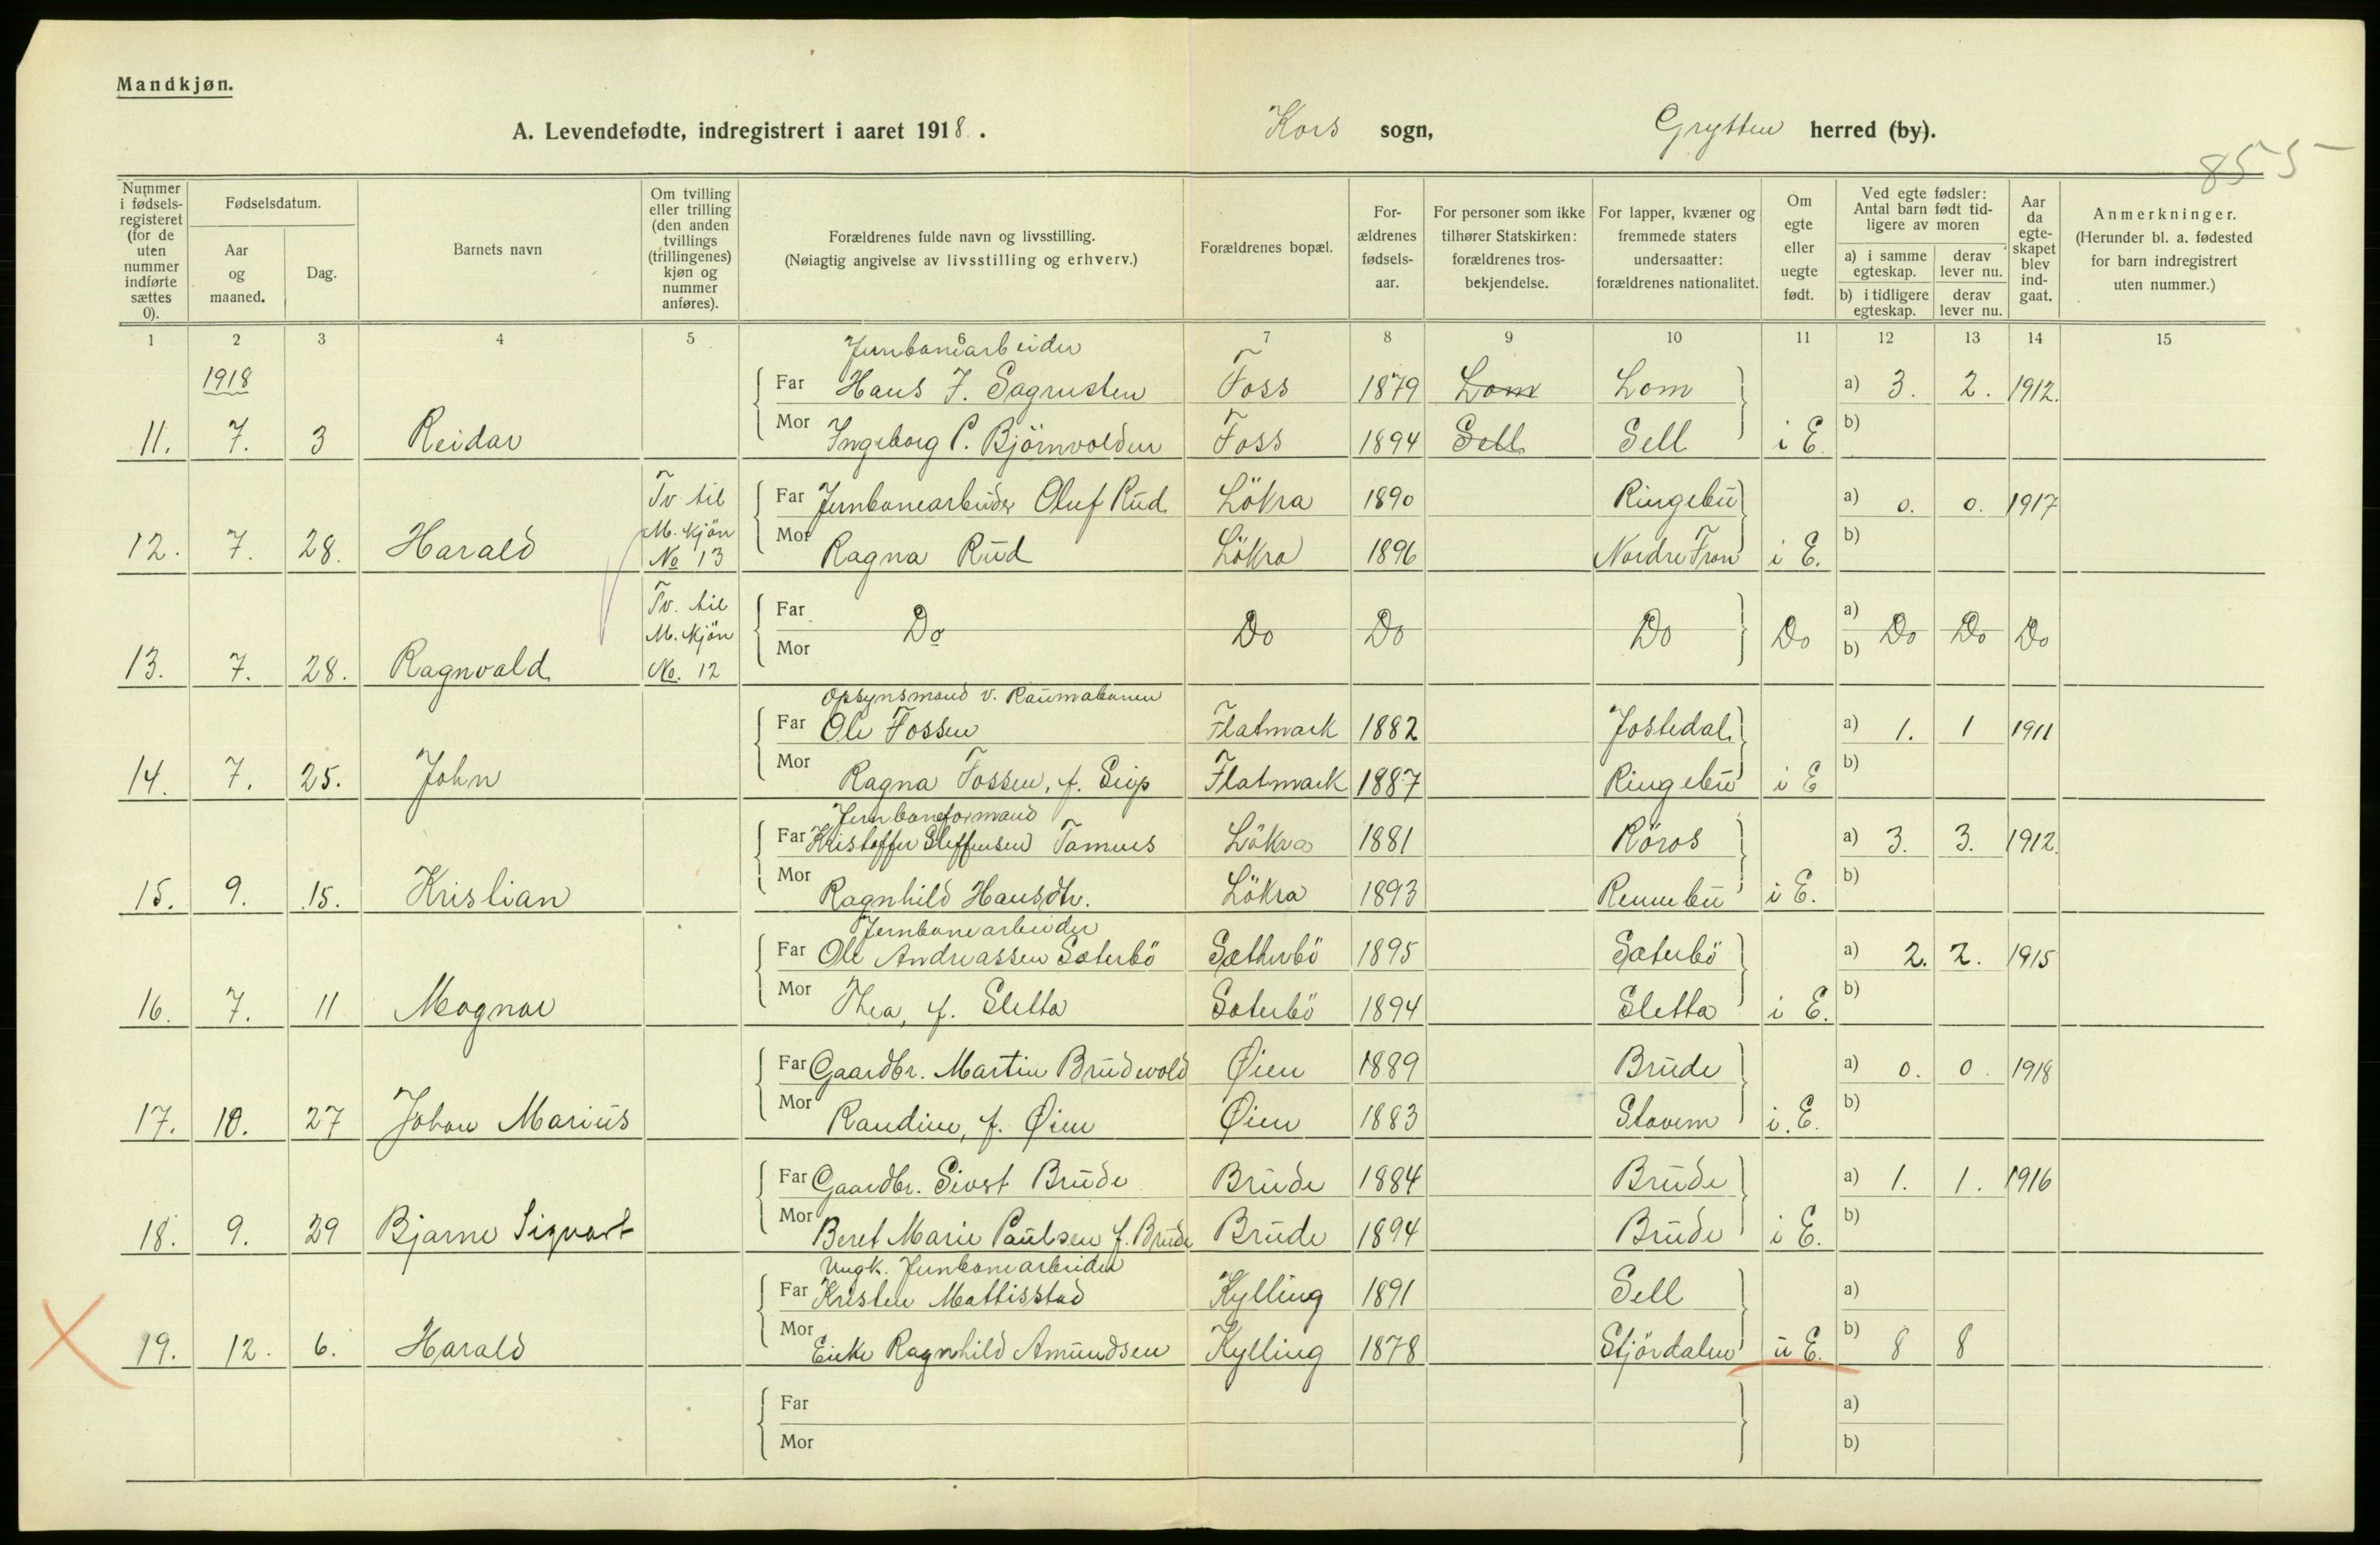 Mandkjøn.
A. Levendefødte, indregistrert i aaret 1918. Kors sogn, Grytten herred (by).
855
Nummer i fødsels-registeret (for de uten nummer indførte sættes 0).
Fødselsdatum.
Aar og maaned.
Dag.
Barnets navn
Om tvilling eller trilling (den anden tvillings (trillingenes) kjøn og nummer anføres).
Forældrenes fulde navn og livsstilling.
(Nøiagtig angivelse av livsstilling og erhverv.)
Forældrenes bopæl.
For-ældrenes fødsels-aar.
For personer som ikke tilhører Statskirken: forældrenes tros-bekjendelse.
For lapper, kvæner og fremmede staters undersaatter: forældrenes nationalitet.
Om egte eller uegte født.
Ved egte fødsler: Antal barn født tid-ligere av moren
a) i samme egteskap.
derav lever nu.
b) i tidligere egteskap.
derav lever nu.
Aar da egte-skapet blev ind-gaat.
Anmerkninger.
(Herunder bl. a. fødested for barn indregistrert uten nummer.)
1 2 3 4 5 6 7 8 9 10 11 12 13 14 15
1918
Jernbanearbeider
Far Hans J. Sagrusten Foss 1879 Lom Lom a) 3. 2. 1912.
11. 7. 3 Reidar Mor Ingeborg P. Björnvolden Foss 1894 Sell Sell i E. b)
Tv. til M. kjön No 13
Far Jernbanearbeider Oluf Rud. Lökra 1890 Ringebu a) 0. 0. 1917
12. 7. 28. Harald Mor Ragna Rud Lökra 1896 Nordre Fron i E. b)
Tv. til M. kjön No. 12
13. 7. 28. Ragnvald Far Mor Do Do Do Do Do a) b) Do Do Do
Opsynsmand v. Raumabanen
Far Ole Fossen Flatmark 1882 Jostedal. a) 1. 1 1911
14. 7. 25. John Mor Ragna Fossen, f. Seip Flatmark 1887 Ringebu i E b)
Jernbaneformand
Far Kristoffer Steffensen Tamnes Lökra 1881 Röros a) 3. 3. 1912.
15. 9. 15. Kristian Mor Ragnhild Hansdtr. Lökra 1893 Rennebu i E. b)
Jernbanearbeider
Far Ole Andreassen Sæterbö Sætherbö 1895 Sæterbö a) 2. 2. 1915
16. 7. 11 Magnar Mor Thea, f. Sletta Sæterbö 1894 Sletta i E. b)
Far Gaardbr. Martin Brudevold Øien 1889 Brude a) 0. 0. 1918
17. 10. 27 Johan Marius Mor Randine, f. Øien Øien 1883 Stavem i. E. b)
Far Gaardbr. Sivert Brude Brude 1884 Brude a) 1. 1. 1916
18. 9. 29 Bjarne Sigvart Mor Beret Marie Paulsen f. Brude Brude 1894 Brude i E. b)
Ungk. Jernbanearbeider
Far Kristen Mattisstad Kylling 1891 Sell a)
19. 12. 6. Harald Mor Enke Ragnhild Amundsen Kylling 1878 Stjördalen u E. b) 8 8
Far a)
Mor b)